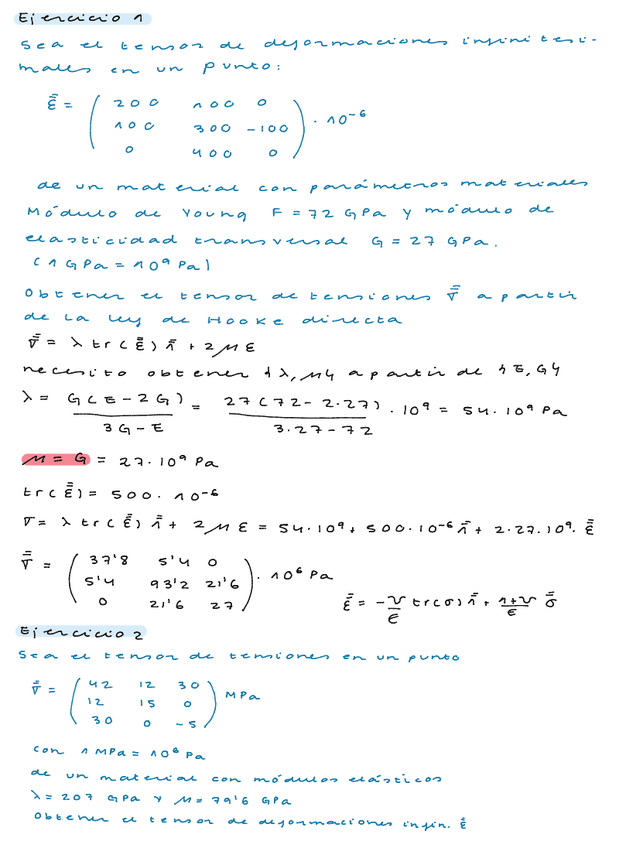 Ejercicio 1
Sea el tensor de deformaciones infinitesi-
males en un punto:
ε̿ = ( 200 100 0
100 300 -100 ) · 10⁻⁶
0 400 0
de un material con parámetros materiales
Módulo de Young F = 72 GPa y módulo de
elasticidad transversal G = 27 GPa.
(1 GPa = 10⁹ Pa)
Obtener el tensor de tensiones σ̿ a partir
de la ley de Hooke directa
σ̿ = λ tr(ε̿) 1̿ + 2με
necesito obtener {λ, μ} a partir de {E, G}
λ = G(E - 2G) / 3G - E = 27(72 - 2·27) / 3·27 - 72 · 10⁹ = 54·10⁹ Pa
μ = G = 27·10⁹ Pa
tr(ε̿) = 500·10⁻⁶
σ = λ tr(ε̿) 1̿ + 2με = 54·10⁹ + 500·10⁻⁶ 1̿ + 2·27·10⁹· ε̿
σ̿ = ( 37'8 5'4 0
5'4 93'2 21'6 ) · 10⁶ Pa
0 21'6 27
ε̿ = -ν/E tr(σ) 1̿ + 1+ν/E σ̿
Ejercicio 2
Sea el tensor de tensiones en un punto
σ̿ = ( 42 12 30
12 15 0 ) MPa
30 0 -5
con 1 MPa = 10⁶ Pa
de un material con módulos elásticos
λ = 207 GPa y μ = 79'6 GPa
Obtener el tensor de deformaciones infin. ε̿